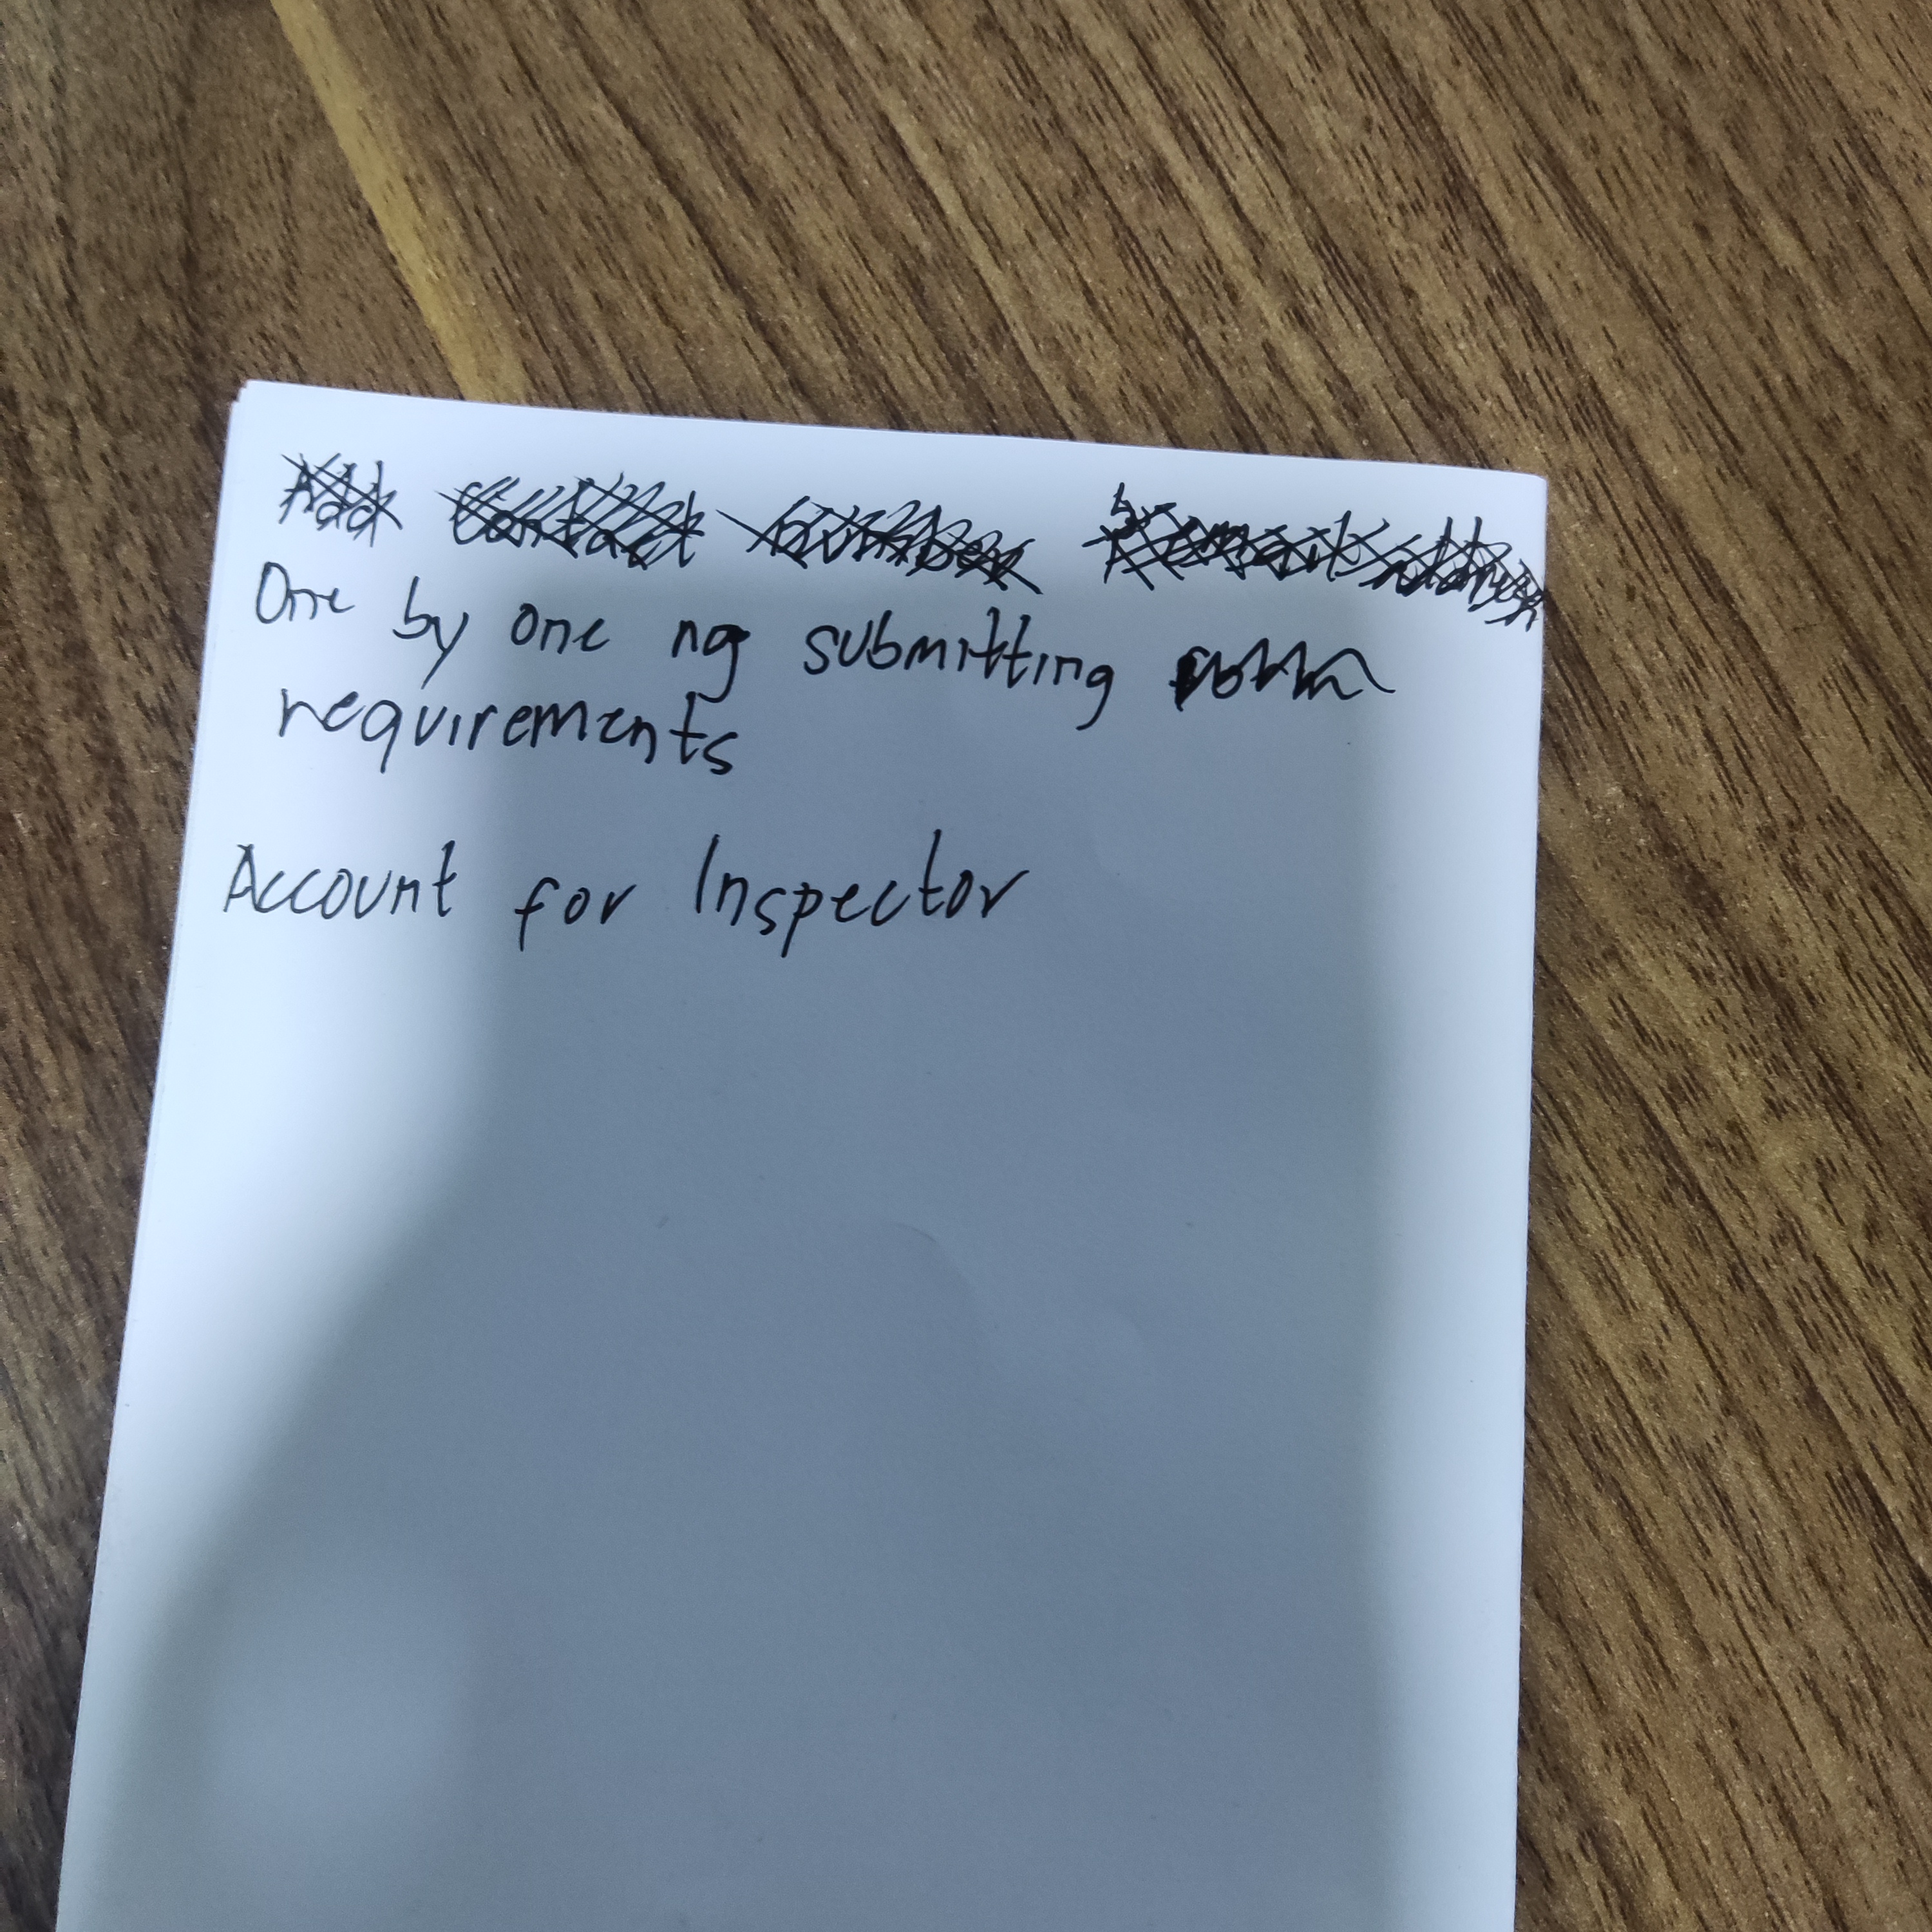 Add Contact number
One by one ng submitting
requirements
Account for Inspector